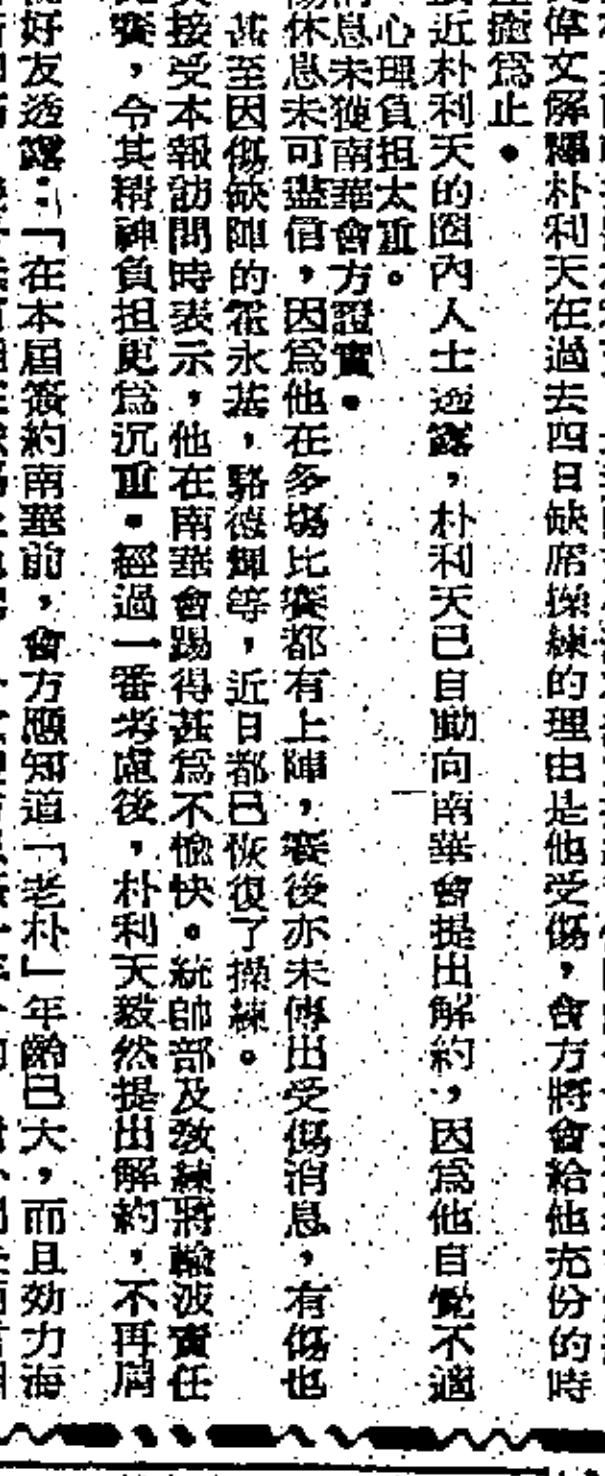 偉文解釋朴利天在過去四日缺席操練的理由是他受傷，會方將會給他充份的時
痊癒爲止。
接近朴利天的圈內人士透露，朴利天已自動向南華會提出解約，因爲他自覺不適
心理負担太重。
消息未獲南華會方證實。
傷休息未可盡信，因爲他在多場比賽都有上陣，賽後亦未傳出受傷消息，有傷也
甚至因傷缺陣的霍永基，駱德輝等，近日都已恢復了操練。
天接受本報訪問時表示，他在南華會踢得甚爲不愉快。統帥部及敎練將輸波責任
賽，令其精神負担更爲沉重。經過一番考慮後，朴利天毅然提出解約，不再屑
好友透露：「在本屆簽約南華前，會方應知道「老朴」年齡已大，而且効力海